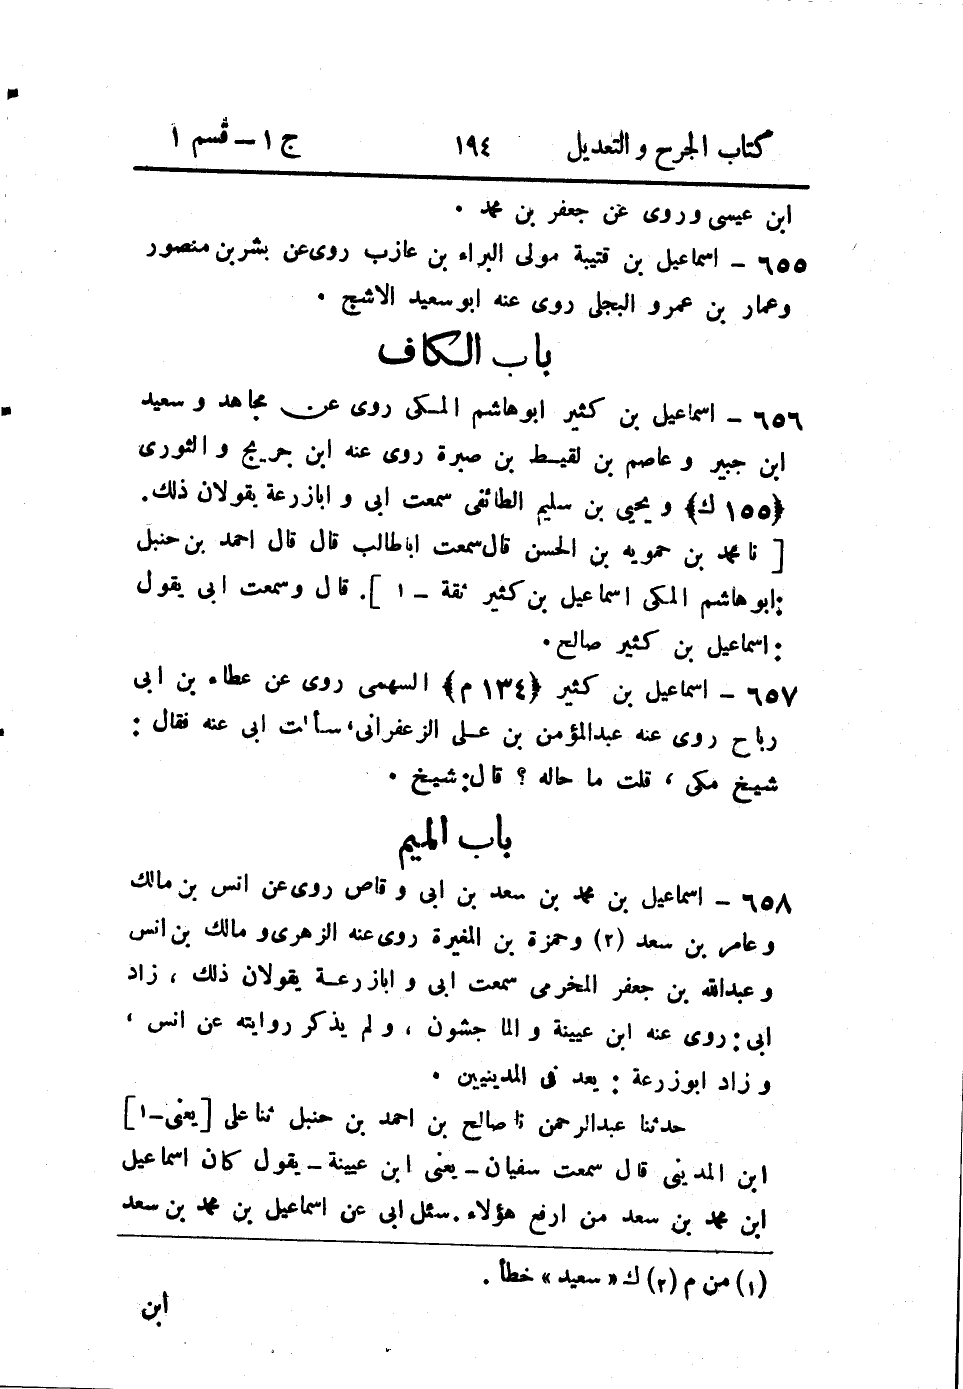 كتاب الجرح و التعديل ١٩٤ ج ١ – قسم ١
ابن عيسى وروى عن جعفر بن محمد .
٦٥٥ – اسماعيل بن قتيبة مولى البراء بن عازب روى عن بشر بن منصور
وعمار بن عمرو البجلى روى عنه ابو سعيد الاشج .
باب الكاف
٦٥٦ – اسماعيل بن كثير ابوهاشم المكى روى عن مجاهد و سعيد
ابن جبير و عاصم بن لقيط بن صبرة روى عنه ابن جريج و الثورى
﴿١٥٥ ك﴾ و يحيى بن سليم الطائفى سمعت ابى و ابازرعة يقولان ذلك.
[ نا محمد بن حمويه بن الحسن قال سمعت اباطالب قال قال احمد بن حنبل
:ابوهاشم المكى اسماعيل بن كثير ثقة – ١ ]. قال وسمعت ابى يقول
:اسماعيل بن كثير صالح.
٦٥٧ – اسماعيل بن كثير ﴿١٣٤ م﴾ السهمى روى عن عطاء بن ابى
رباح روى عنه عبدالمؤمن بن على الزعفرانى، سألت ابى عنه فقال :
شيخ مكى ، قلت ما حاله ؟ قال:شيخ .
باب الميم
٦٥٨ – اسماعيل بن محمد بن سعد بن ابى وقاص روى عن انس بن مالك
وعامر بن سعد (٢) وحمزة بن المغيرة روى عنه الزهرى و مالك بن انس
وعبدالله بن جعفر المخرمى سمعت ابى و ابازرعة يقولان ذلك ، زاد
ابى: روى عنه ابن عيينة و الما جشون ، و لم يذكر روايته عن انس ،
و زاد ابوزرعة : يعد فى المدينيين .
حدثنا عبدالرحمن نا صالح بن احمد بن حنبل ثنا على [يعنى–١]
ابن المدينى قال سمعت سفيان – يعنى ابن عيينة – يقول كان اسماعيل
ابن محمد بن سعد من ارفع هؤلاء . سئل ابى عن اسماعيل بن محمد بن سعد
(١) من م (٢) ك « سعيد » خطأ .
ابن